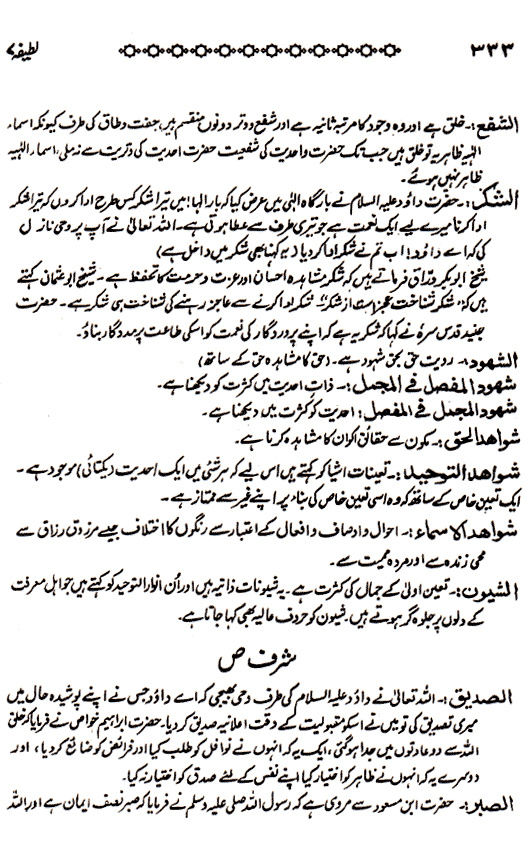 ۳۳۳ لطیفہ ۷
الشفع :۔ خلق ہے اور وہ وجود کا مرتبہ ثانیہ ہے اور شفع و وتر دونوں منقسم ہیں، جفت وطاق کی طرف کیونکہ اسماء
الٰہیہ ظاہر یہ تو خلق ہیں جب تک حضرت واحدیت کی شفعیت حضرت احدیت کی وتریت سے نہ ملی، اسماء الٰہیہ
ظاہر نہیں ہوئے۔
الشکر :۔ حضرت داؤد علیہ السلام نے بارگاہ الٰہی میں عرض کیا کہ بار الٰہا! میں تیرا شکر کس طرح ادا کروں کہ تیرا شکر
ادا کرنا میرے لیے ایک نعمت ہے جو تیری طرف سے عطا ہوتی ہے۔ اللہ تعالیٰ نے آپ پر وحی نازل
کی کہ اے داؤد! اب تم نے شکر ادا کر دیا (یہ کہنا بھی شکر میں داخل ہے)
شیخ ابوبکر وراق فرماتے ہیں کہ شکر مشاہدہ احسان اور عزت و حرمت کا تحفظ ہے۔ شیخ ابو عثمان کہتے
ہیں کہ "شکر شناخت عجز است از شکر" شکر ادا کرنے سے عاجز رہنے کی شناخت ہی شکر ہے۔ حضرت
جنید قدس سرہٗ نے کہا کہ شکر یہ ہے کہ اپنے پروردگار کی نعمت کو اسکی طاعت پر مددگار بناؤ۔
الشہود :۔ رویت حق بحق شہود ہے۔ (حق کا مشاہدہ حق کے ساتھ)
شہود المفصل فی المجمل :۔ ذات احدیت میں کثرت کو دیکھنا ہے۔
شہود المجمل فی المفصل : احدیت کو کثرت میں دیکھنا ہے۔
شواہد الحق :۔ مکون سے حقائق اکوان کا مشاہدہ کرنا ہے۔
شواہد التوحید :۔ تعینات اشیا کو کہتے ہیں اس لیے کہ ہر شئی میں ایک احدیت (یکتائی) موجود ہے۔
ایک تعین خاص کے ساتھ کہ وہ اسی تعین خاص کی بناء پر اپنے غیر سے ممتاز ہے۔
شواہد الاسماء :۔ احوال و اوصاف و افعال کے اعتبار سے رنگوں کا اختلاف جیسے مرزوق رزاق سے
حی زندہ سے اور مردہ ممیت سے۔
الشیون :۔ تعین اولیٰ کے جمال کی کثرت ہے۔ یہ شیونات ذاتیہ ہیں اور اُن انوار التوحید کو کہتے ہیں جو اہل معرفت
کے دلوں پر جلوہ گر ہوتے ہیں۔ شیون کو حروف عالیہ بھی کہا جاتا ہے۔
شرف ص
الصدیق :۔ اللہ تعالیٰ نے داؤد علیہ السلام کی طرف وحی بھیجی کہ اے داؤد جس نے اپنے پوشیدہ حال میں
میری تصدیق کی تو میں نے اسکو مقبولیت کے وقت اعلانیہ صدیق کر دیا۔ حضرت ابراہیم خواص نے فرمایا کہ خلق
اللہ سے دو عادتوں میں جدا ہو گئی، ایک یہ کہ انہوں نے نوافل کو طلب کیا اور فرائض کو ضائع کر دیا، اور
دوسرے یہ کہ انہوں نے ظاہر کو اختیار کیا اپنے نفس کے لئے صدق کو اختیار نہ کیا۔
الصبر :۔ حضرت ابن مسعود سے مروی ہے کہ رسول اللہ صلی علیہ وسلم نے فرمایا کہ صبر نصف ایمان ہے اور اللہ